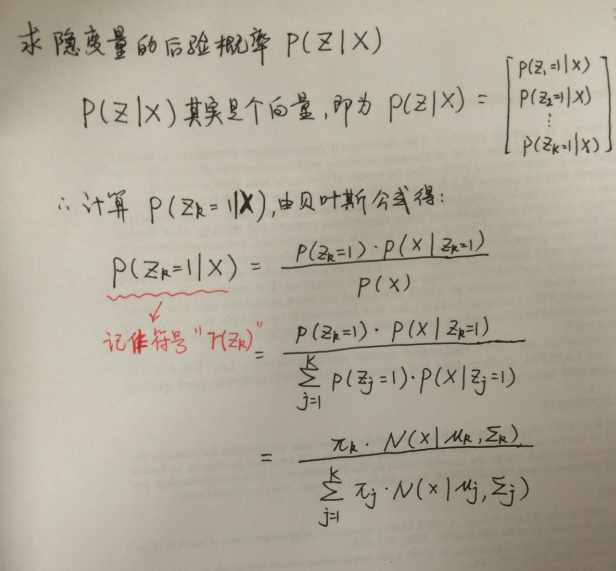 求隐变量的后验概率 P(Z|X)
P(Z|X)其实是个向量,即为 P(Z|X) = [P(Z₁=1|X) P(Z₂=1|X) ⋮ P(Zₖ=1|X)]
∴ 计算 P(Zₖ=1|X),由贝叶斯公式得:
P(Zₖ=1|X) = P(Zₖ=1)·P(X|Zₖ=1) / P(X)
记作符号“γ(Zₖ)”
= P(Zₖ=1)·P(X|Zₖ=1) / ∑ⱼ₌₁ᴷ P(Zⱼ=1)·P(X|Zⱼ=1)
= πₖ·N(X|μₖ,Σₖ) / ∑ⱼ₌₁ᴷ πⱼ·N(X|μⱼ,Σⱼ)